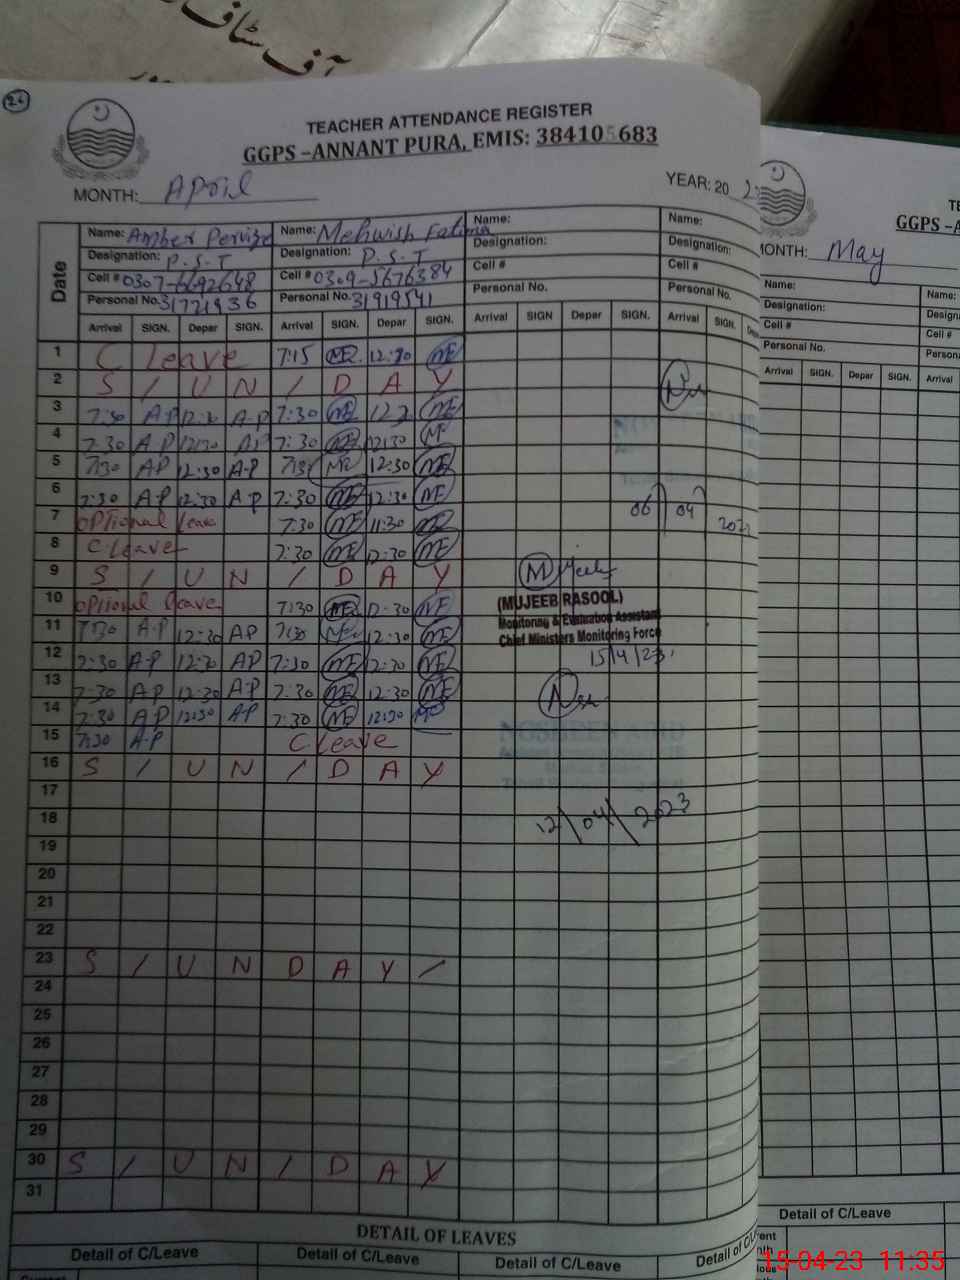 آف سٹاف
26
TEACHER ATTENDANCE REGISTER
GGPS –ANNANT PURA, EMIS: 384105683
MONTH: April YEAR: 20 2
Date Name: Amber Pervize Name: Mehwish Fatima Name: Name:
Designation: P.S.T Designation: P.S.T Designation: Designation:
Cell # 0307-6692648 Cell # 0309-5676384 Cell # Cell #
Personal No. 31721936 Personal No. 31919541 Personal No. Personal No.
Arrival SIGN. Depar SIGN. Arrival SIGN. Depar SIGN. Arrival SIGN Depar SIGN. Arrival SIGN.
1 C Leave 7:15 ME 12:30 ME
2 S / U N / D A Y
3 7:30 A P 12:30 A-P 7:30 ME ME
4 7:30 A-P 12:30 AP 7:30 ME 12:30 M
5 7:30 AP 12:30 A-P 7:30 ME 12:30 ME
6 7:30 A-P 12:30 A P 7:30 ME 12:30 ME
06/04/
7 OPTional leave 7:30 ME 11:30 ME
8 C.leave 7:30 ME 12:30 ME
9 S / U N / D A Y
10 OPtional leave 7:30 ME 12:30 ME
(MUJEEB RASOOL)
Monitoring & Evaluation Assistant
Chief Ministers Monitoring Force
15/4/23.
11 7:30 A-P 12:30 AP 7:30 ME 12:30 ME
12 7:30 A-P 12:30 AP 7:30 ME 12:30 ME
13 7:30 A-P 12:30 A-P 7:30 ME 12:30 ME
14 7:30 AP 12:30 A-P 7:30 ME 12:30 ME
15 7:30 A-P C.Leave
16 S / U N / D A Y
17
18
12/04/2023
19
20
21
22
23 S / U N D A Y /
24
25
26
27
28
29
30 S / U N / D A Y
31
DETAIL OF LEAVES
Detail of C/Leave Detail of C/Leave Detail of C/Leave Detail of C/L
GGPS –A
MONTH: May
Name: Name:
Designation:
Cell # Cell #
Personal No. Person
Arrival SIGN. Depar SIGN. Arrival
Detail of C/Leave
15-04-23 11:35